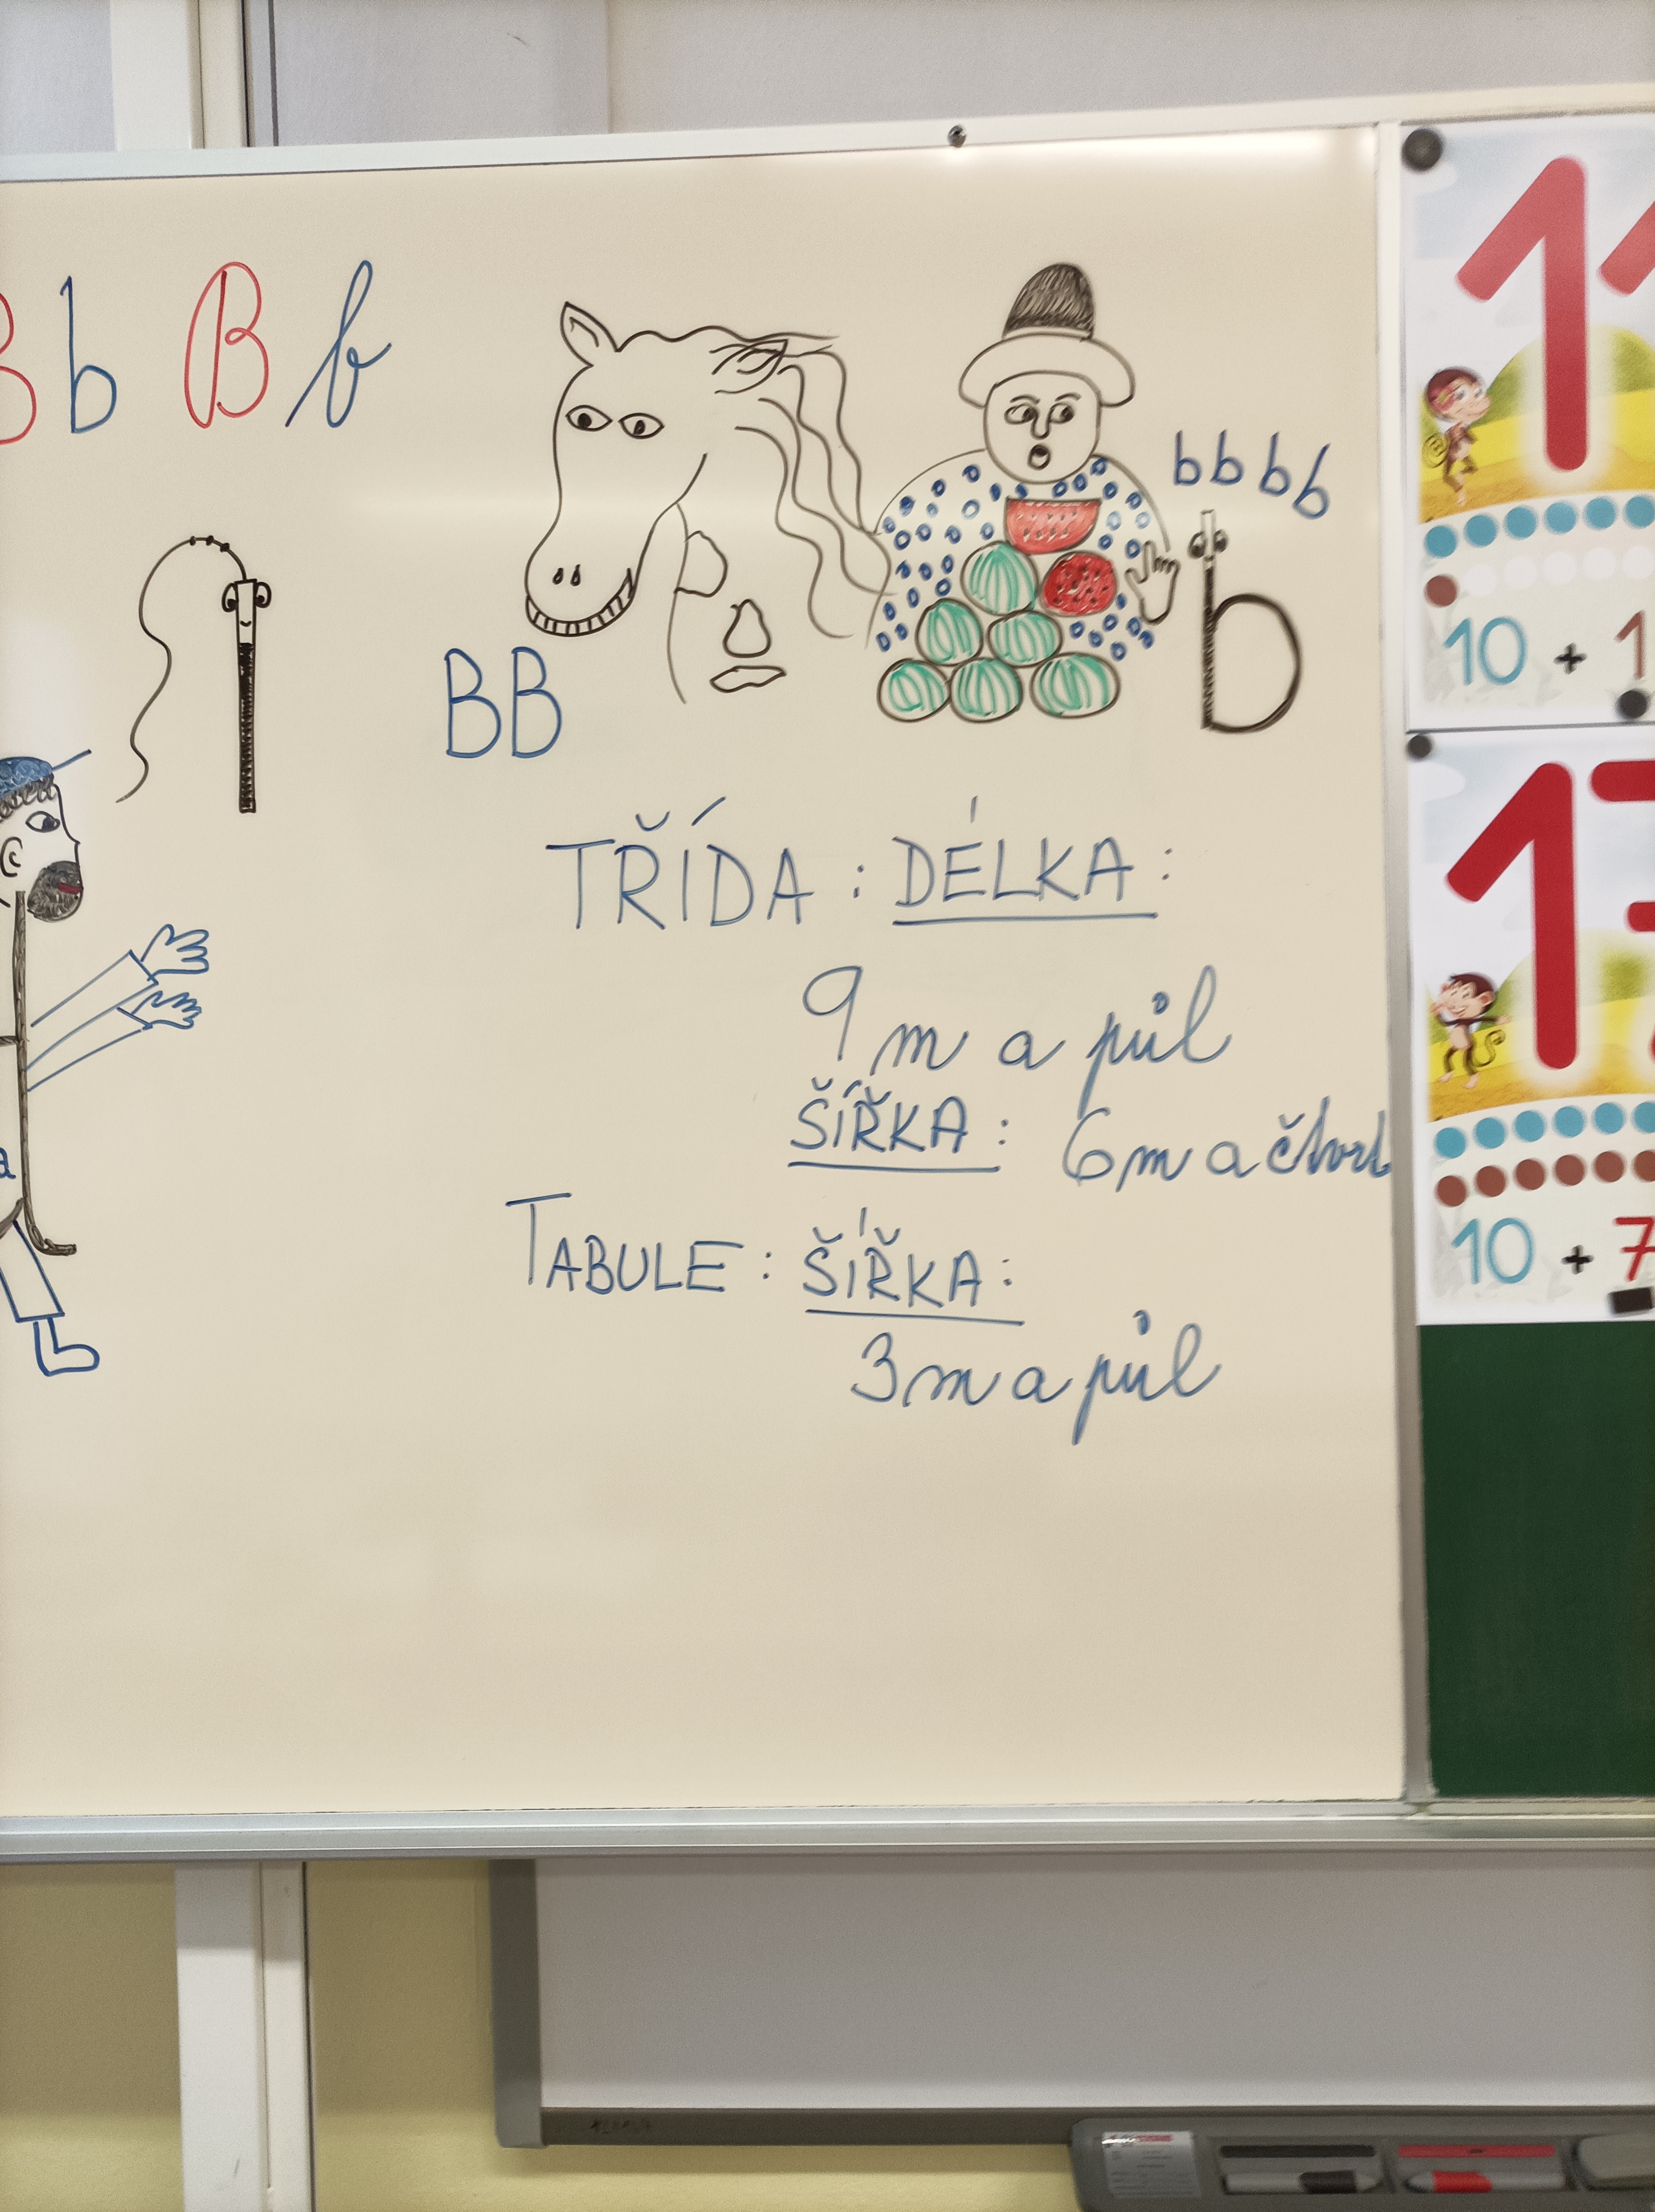 B b B b
b b b b
BB
b
TŘÍDA : DÉLKA :
9 m a půl
ŠÍŘKA : 6 m a čtvrt
TABULE : ŠÍŘKA :
3 m a půl
a
11
10 + 1
17
10 + 7